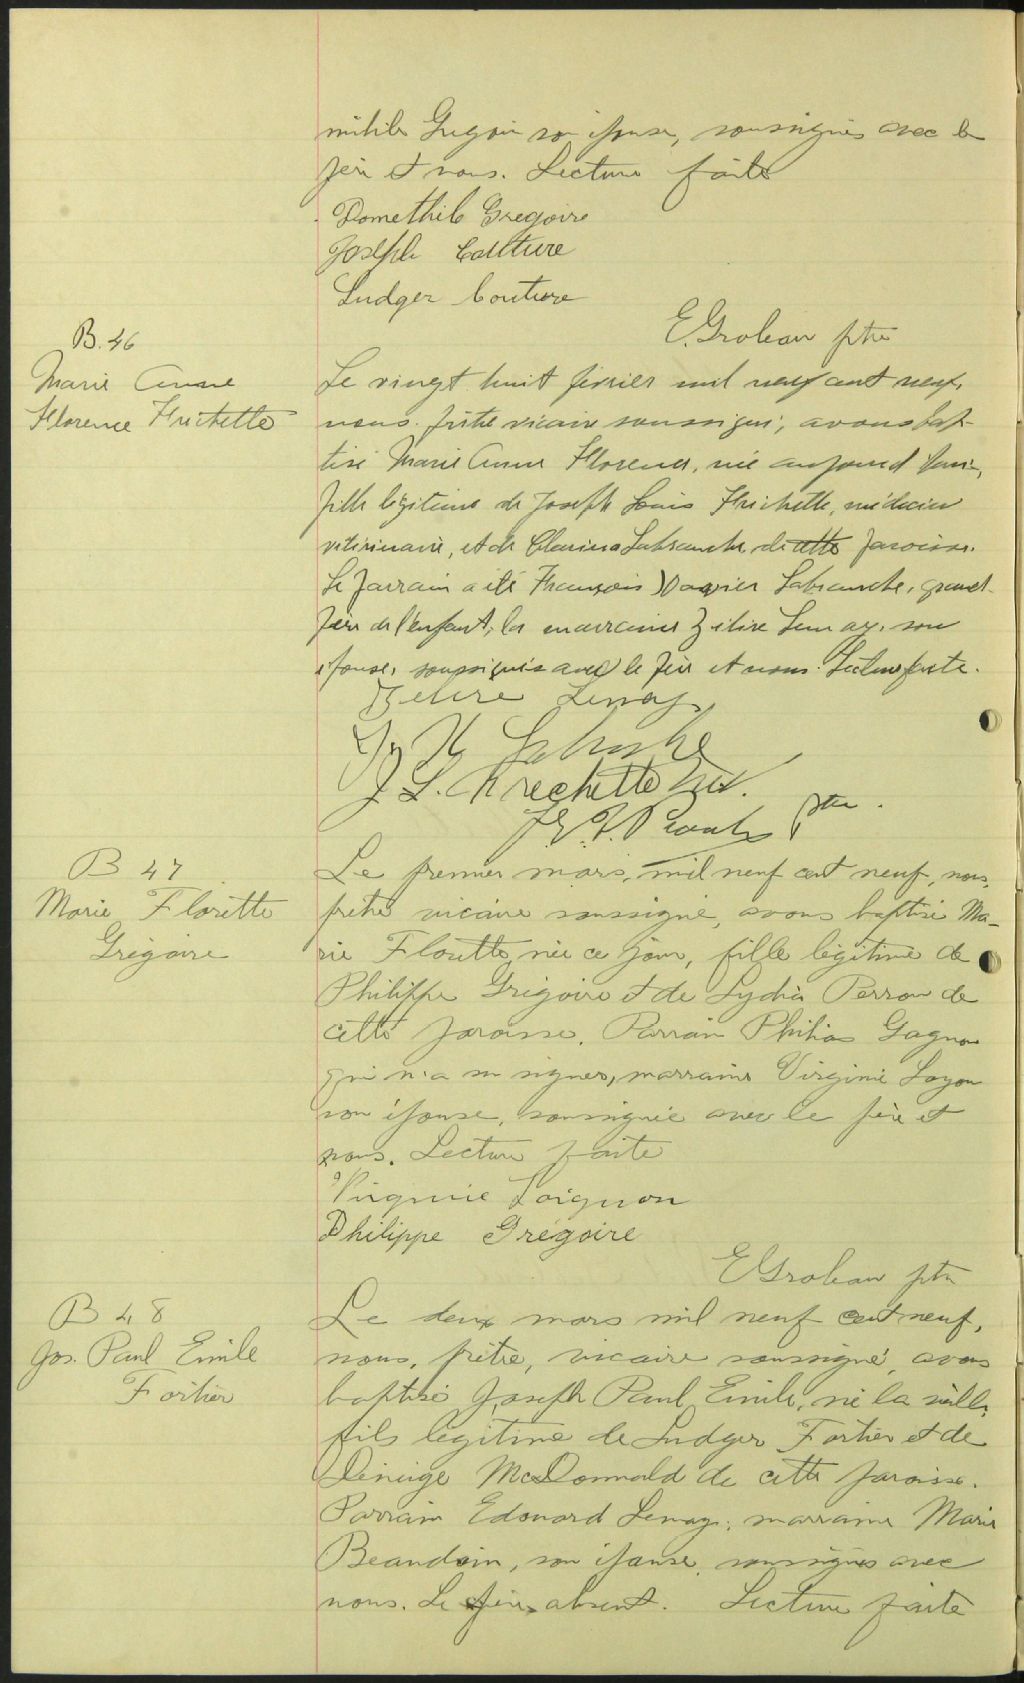 mithile Grégoire son épouse, soussignés avec le
père et nous. Lecture faite
Domethile Gregoire
Joseph Couture
Ludger Couture
E. Groleau ptre
B. 46
Marie Anne
Florence Frichette
Le vingt huit février mil neuf cent neuf,
nous prêtre vicaire soussigné, avons bap-
tisé Marie Anne Florence, née aujourd'hui,
fille légitime de Joseph Louis Frichette, médecin
vétérinaire, et de Clarina Labranche de cette paroisse.
Le parrain a été François Xavier Labranche, grand-
père de l'enfant, la marraine Zélire Lemay, son
épouse, soussignés avec le père et nous. Lecture faite.
Zelire Lemay
J. L. Frechette
ptre.
B 47
Marie Florette
Grégoire
Le premier mars, mil neuf cent neuf, nous,
prêtre vicaire soussigné, avons baptisé Ma-
rie Florette, née ce jour, fille légitime de
Philippe Grégoire et de Lydia Perron de
cette paroisse. Parrain Philias Gagnon
qui n'a su signer, marraine Virginie Loyon
son épouse, soussignée avec le père et
nous. Lecture faite
Virginie Loignon
Philippe Grégoire
E Groleau ptre
B 48
Jos. Paul Emile
Fortier
Le deux mars mil neuf cent neuf,
nous, prêtre, vicaire soussigné, avons
baptisé Joseph Paul Emile, né la veille,
fils légitime de Ludger Fortier et de
McDonnald de cette paroisse.
Parrain Edouard Lemay; marraine Marie
Beaudoin, son épouse, soussignés avec
nous. Le père absent. Lecture faite